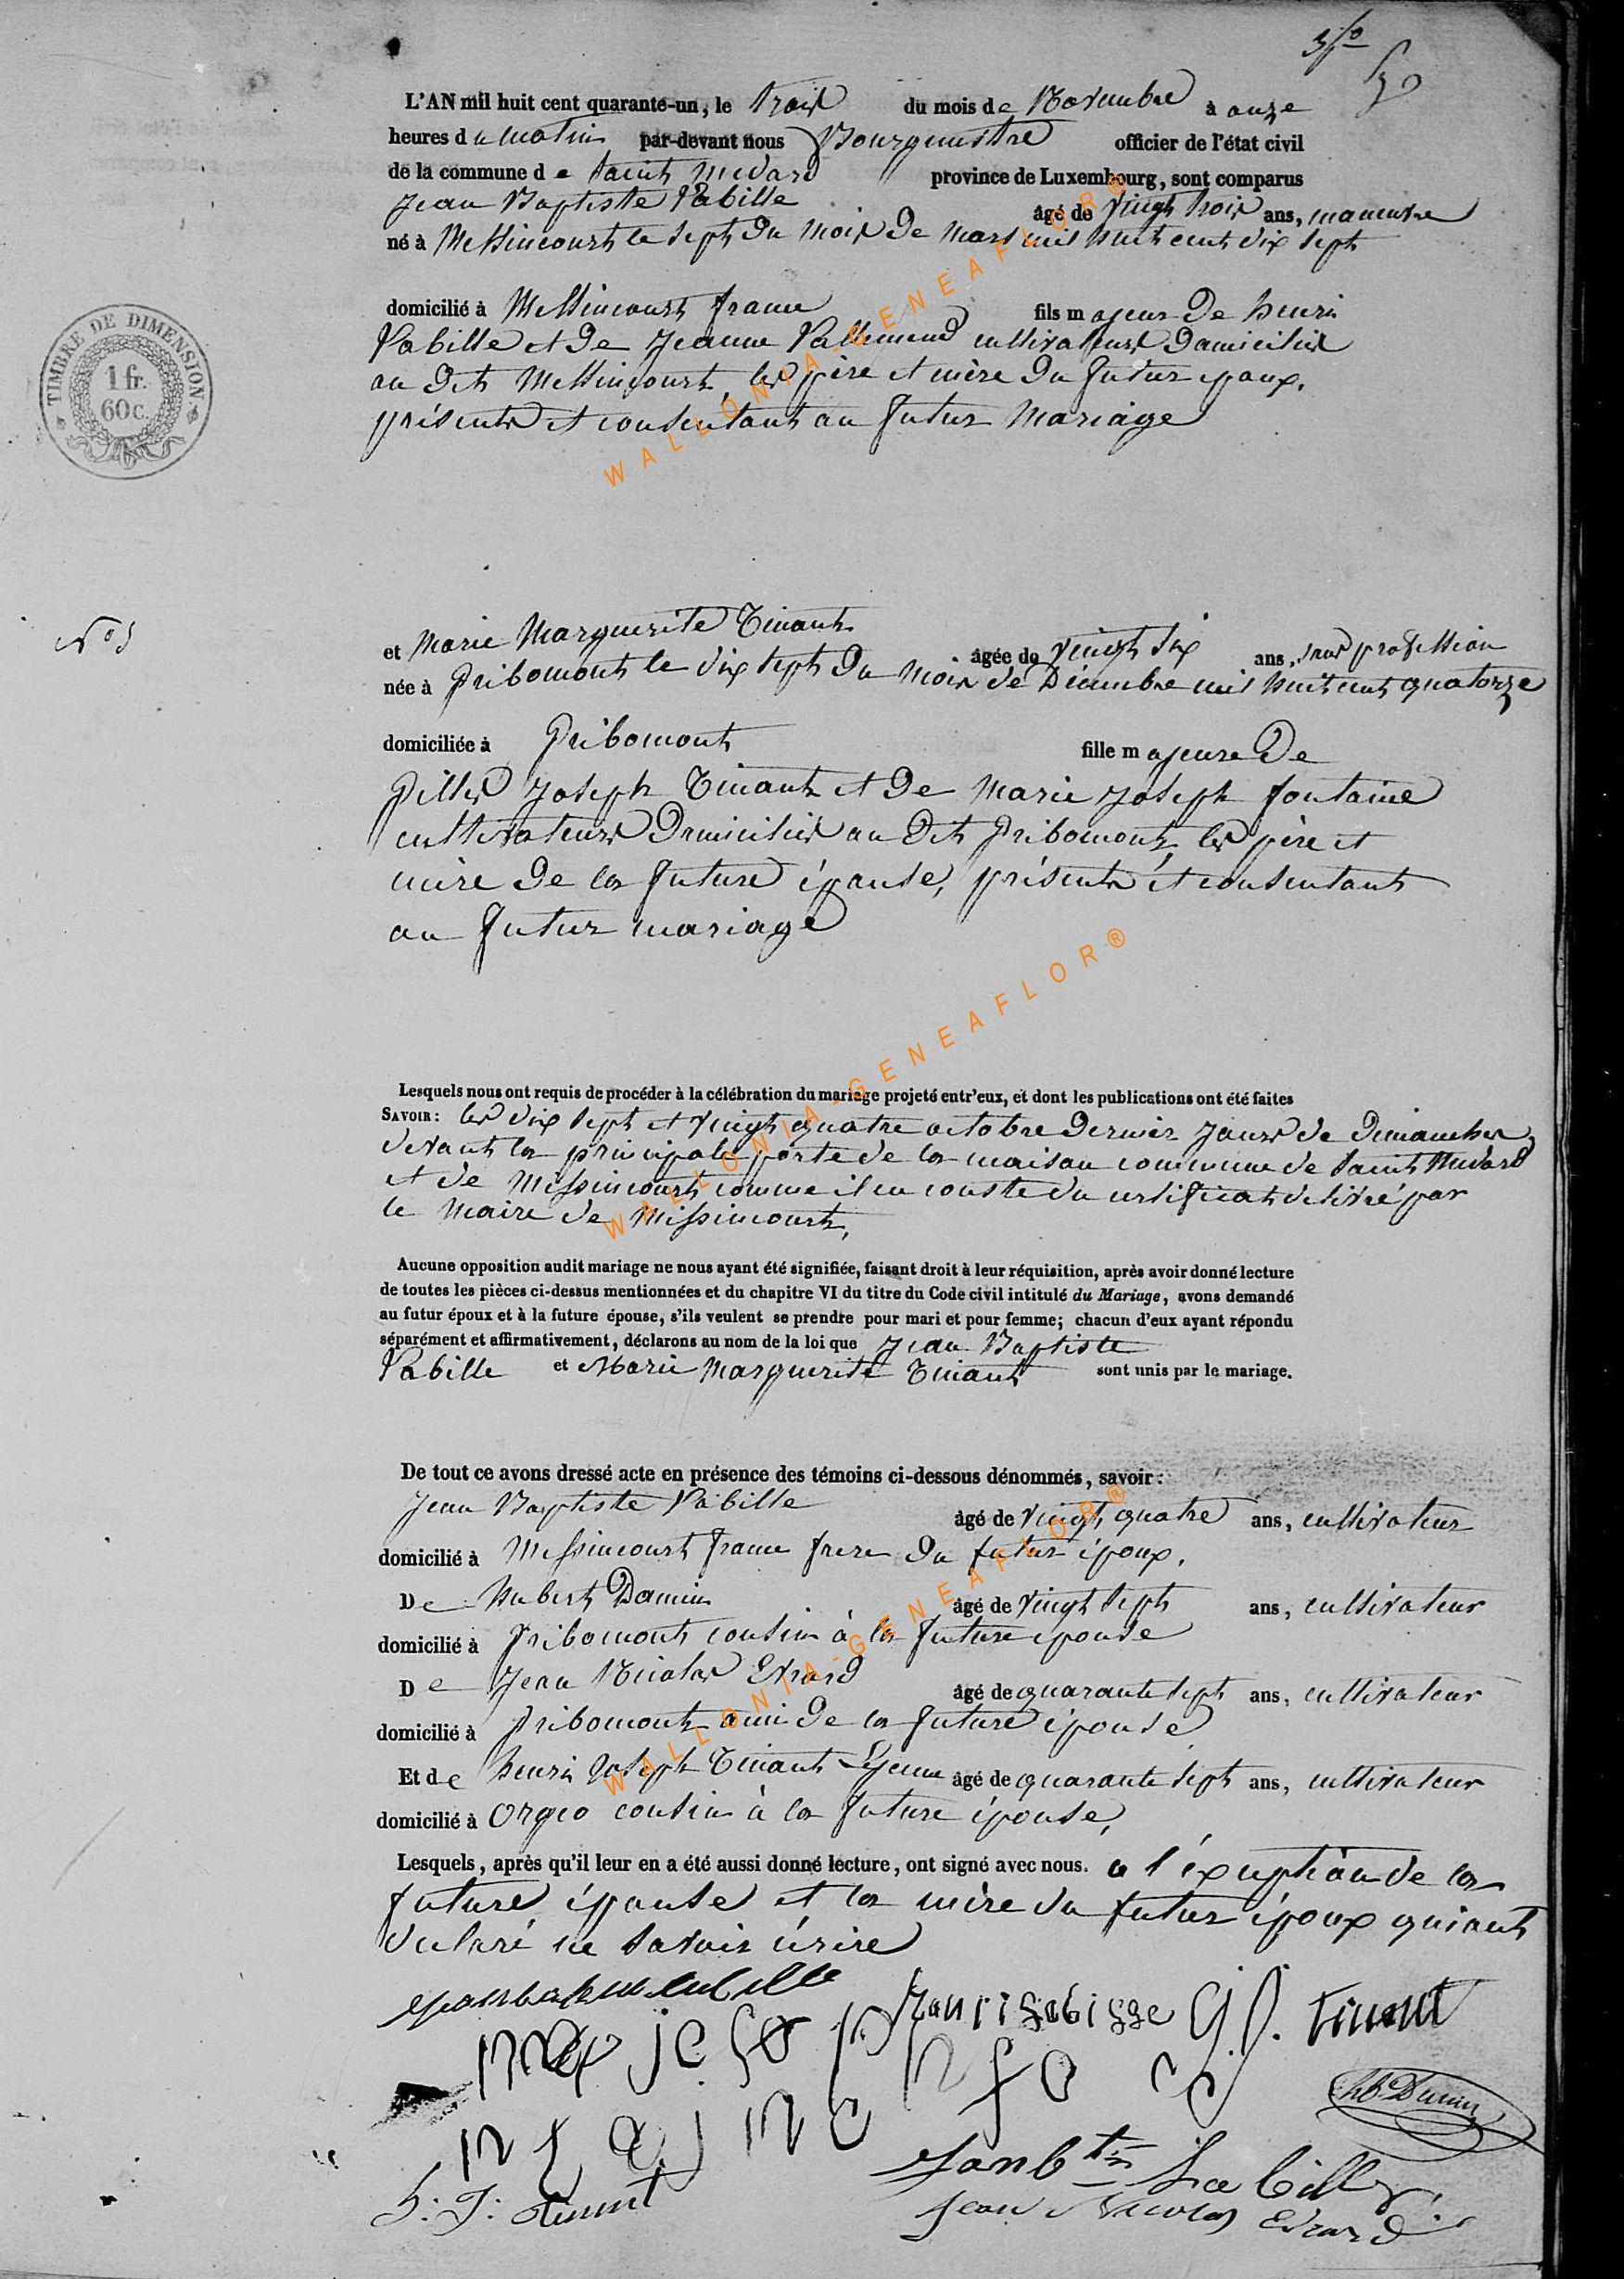 L'AN mil huit cent quarante-un, le trois du mois de Novembre à onze
heures du matin par-devant nous Bourgmestre officier de l'état civil
de la commune de Saint Médard province de Luxembourg, sont comparus
Jean Baptiste Labille âgé de vingt trois ans, manœuvre
né à Messincourt le sept du mois de mars mil huit cent dix sept
domicilié à Messincourt france fils majeur de henri
Labille et de Jeanne cultivateurs domiciliés
au dit Messincourt, les père et mère du futur époux,
présents et consentant au futur mariage
TIMBRE DE DIMENSION
1 fr.
60 c.
N° 5
et Marie Marguerite Tinant âgée de vingt six ans, sans profession
née à Gribomont le dix sept du mois de Décembre mil huit cent quatorze
domiciliée à Gribomont fille majeure de
Joseph Tinant et de Marie Joseph fontaine
cultivateurs domiciliés au dit Gribomont, les père et
mère de la future épouse, présents et consentant
au futur mariage
Lesquels nous ont requis de procéder à la célébration du mariage projeté entr'eux, et dont les publications ont été faites
SAVOIR: les dix sept et vingt quatre octobre dernier jours de dimanches
devant la principale porte de la maison commune de Saint Médard
et de Messincourt comme il en conste du certificat délivré par
le Maire de Messincourt,
Aucune opposition audit mariage ne nous ayant été signifiée, faisant droit à leur réquisition, après avoir donné lecture
de toutes les pièces ci-dessus mentionnées et du chapitre VI du titre du Code civil intitulé du Mariage, avons demandé
au futur époux et à la future épouse, s'ils veulent se prendre pour mari et pour femme; chacun d'eux ayant répondu
séparément et affirmativement, déclarons au nom de la loi que Jean Baptiste
Labille et Marie Marguerite Tinant sont unis par le mariage.
De tout ce avons dressé acte en présence des témoins ci-dessous dénommés, savoir:
Jean Baptiste Labille âgé de vingt quatre ans, cultivateur
domicilié à Messincourt france frere du futur époux,
De hubert Damin âgé de vingt sept ans, cultivateur
domicilié à Gribomont cousin à la future épouse
De Jean Nicolas Evrard âgé de quarante sept ans, cultivateur
domicilié à Gribomont ami de la future épouse,
Et de henri Joseph Tinant âgé de quarante sept ans, cultivateur
domicilié à Orgeo cousin à la future épouse,
Lesquels, après qu'il leur en a été aussi donné lecture, ont signé avec nous. a l'exeption de la
future épouse et la mère du futur époux qui ont
declaré ne savoir écrire
tinant
h: J: tinant
Janb tis Labille
Jean Nicolas Evrard
WALLONIA-GENEAFLOR®
WALLONIA-GENEAFLOR®
WALLONIA-GENEAFLOR®